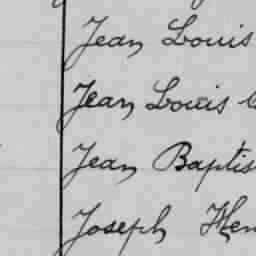 Jean Louis
Jean Louis
Jean Baptis
Joseph Hen